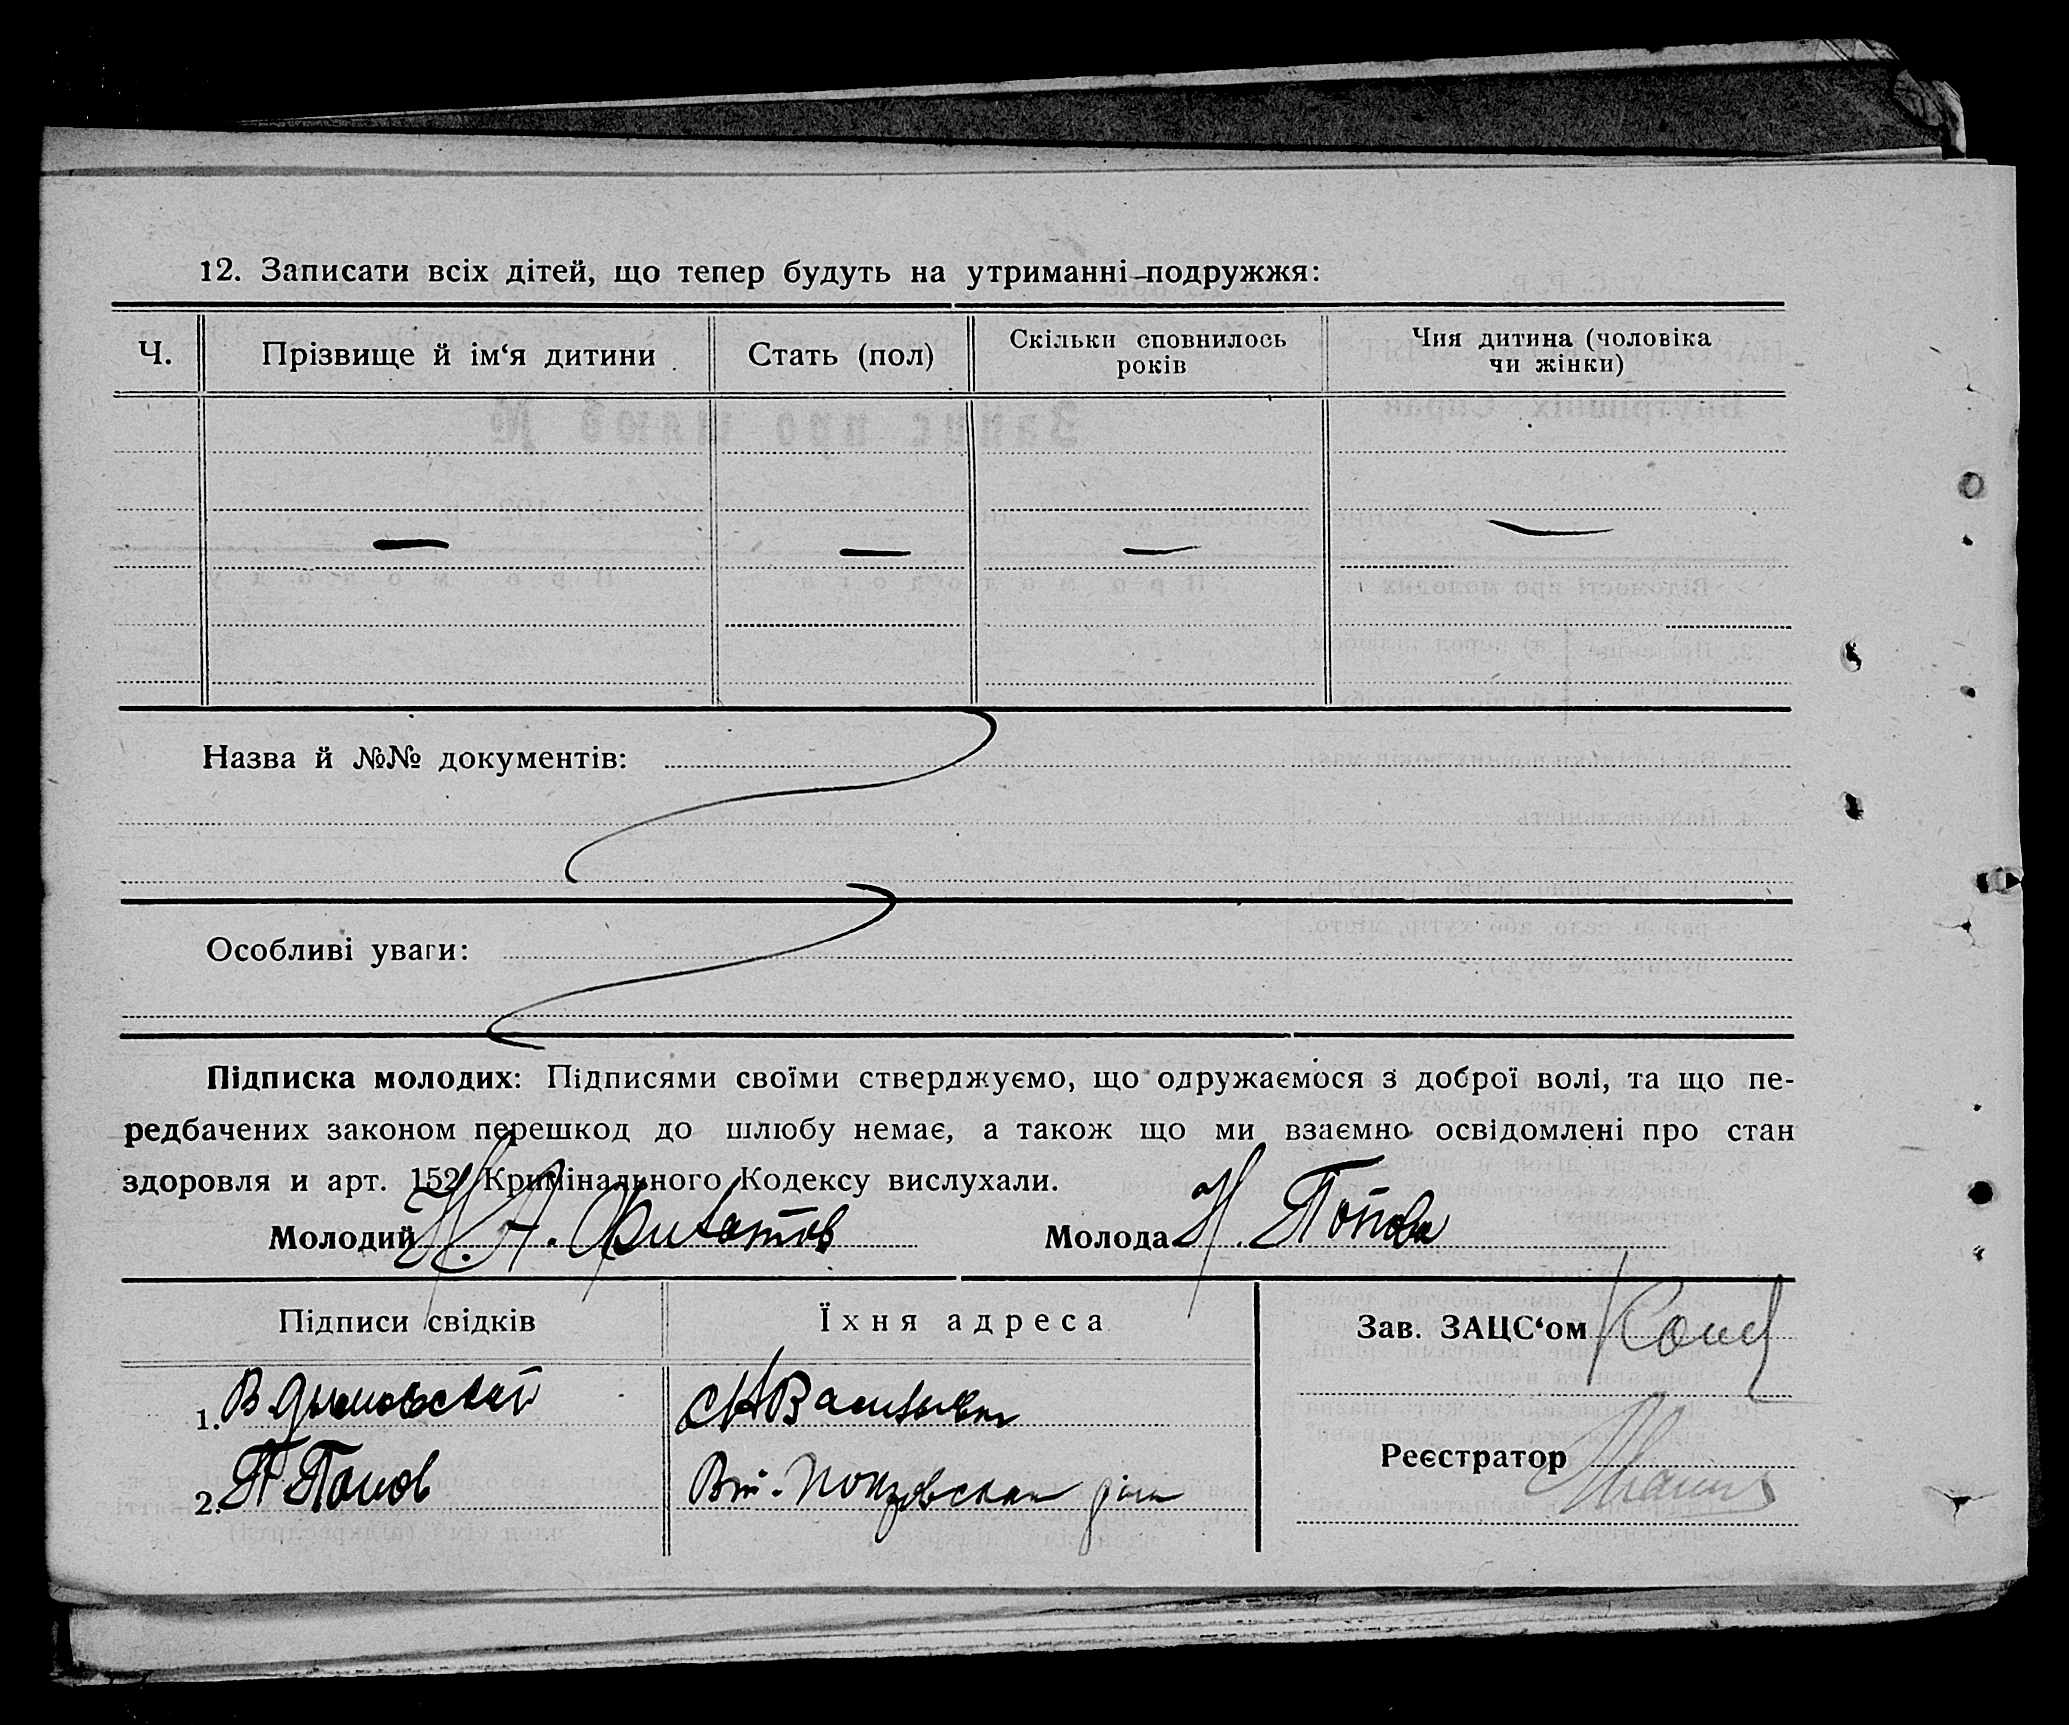 12. Записати всіх дітей, що тепер будуть на утриманні подружжя:
Ч. Прізвище й ім‘я дитини Стать (пол) Скільки сповнилось років Чия дитина (чоловіка чи жінки)
— — — —
Назва й №№ документів:
Особливі уваги:
Підписка молодих: Підписями своїми стверджуємо, що одружаємося з доброї волі, та що пе-
редбачених законом перешкод до шлюбу немає, а також що ми взаємно освідомлені про стан
здоровля и арт. 152 Кримінального Кодексу вислухали.
Молодий Н. А. Филатов Молода Н. Попова
Підписи свідків Їхня адреса Зав. ЗАЦС‘ом
1. В
Реєстратор
2. П. Попов